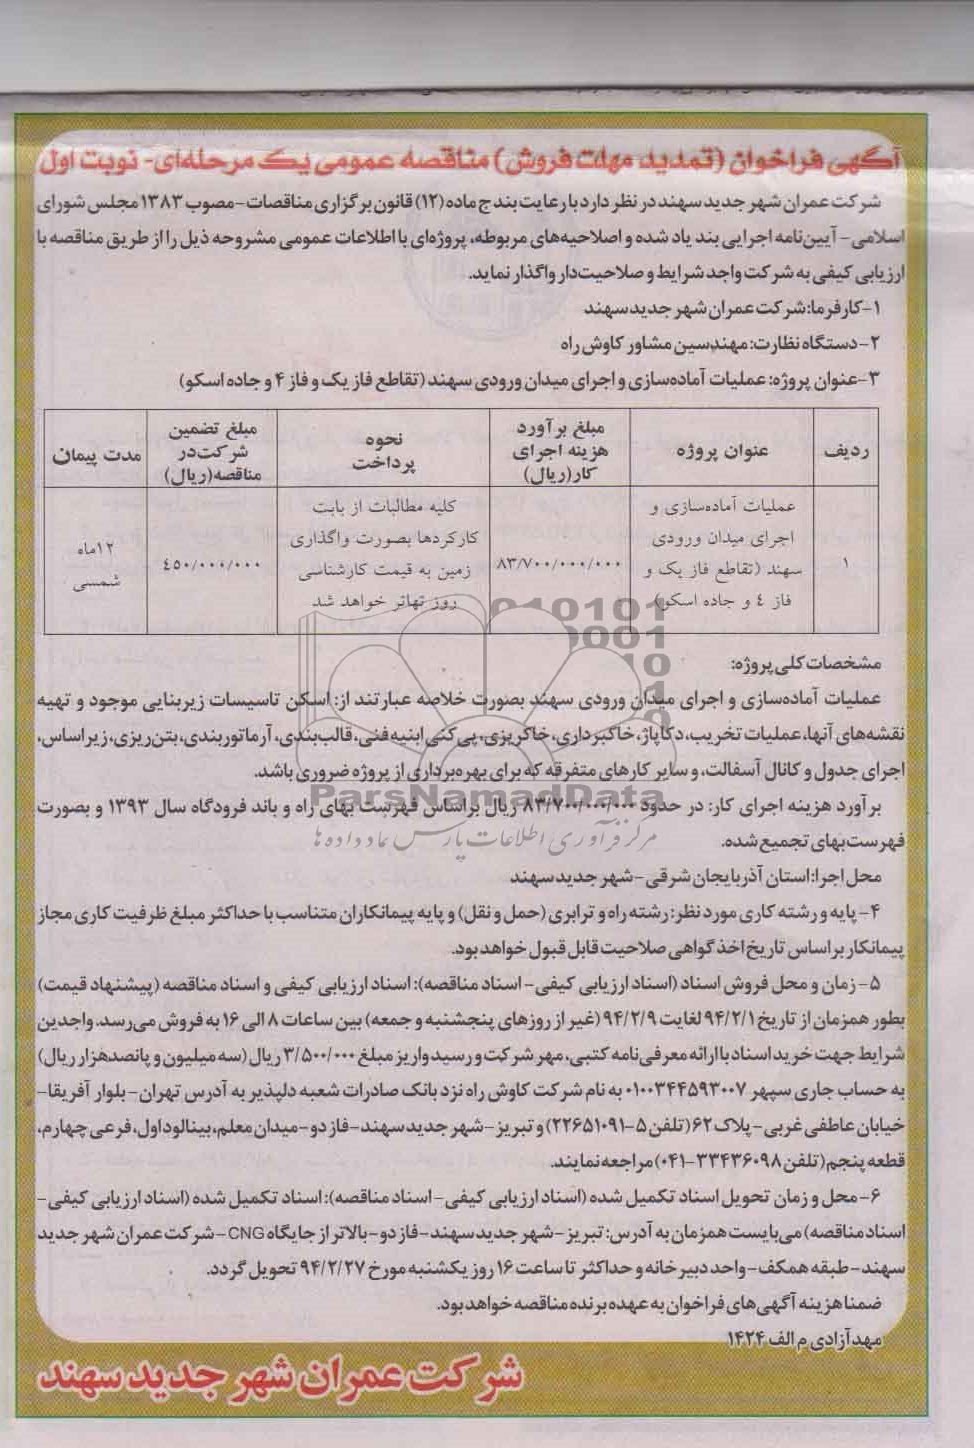 آگهی فراخوان (تمدید مهلت فروش) مناقصه عمومی یک مرحله‌ای- نوبت اول
شرکت عمران شهر جدید سهند در نظر دارد با رعایت بند ج ماده (۱۲) قانون برگزاری مناقصات-مصوب ۱۳۸۳ مجلس شورای
اسلامی- آیین‌نامه اجرایی بند یاد شده و اصلاحیه‌های مربوطه، پروژه‌ای با اطلاعات عمومی مشروحه ذیل را از طریق مناقصه با
ارزیابی کیفی به شرکت واجد شرایط و صلاحیت‌دار واگذار نماید.
۱-کارفرما: شرکت عمران شهر جدید سهند
۲-دستگاه نظارت: مهندسین مشاور کاوش راه
۳-عنوان پروژه: عملیات آماده‌سازی و اجرای میدان ورودی سهند (تقاطع فاز یک و فاز ۴ و جاده اسکو)
ردیف
عنوان پروژه
مبلغ برآورد
هزینه اجرای
کار(ریال)
نحوه
پرداخت
مبلغ تضمین
شرکت‌در
مناقصه(ریال)
مدت پیمان
۱
عملیات آماده‌سازی و
اجرای میدان ورودی
سهند (تقاطع فاز یک و
فاز ٤ و جاده اسکو)
۸۳/۷۰۰/۰۰۰/۰۰۰
کلیه مطالبات از بابت
کارکردها بصورت واگذاری
زمین به قیمت کارشناسی
روز تهاتر خواهد شد
٤٥۰/۰۰۰/۰۰۰
۱۲ماه
شمسی
مشخصات کلی پروژه:
عملیات آماده‌سازی و اجرای میدان ورودی سهند بصورت خلاصه عبارتند از: اسکن تاسیسات زیربنایی موجود و تهیه
نقشه‌های آنها، عملیات تخریب، دکاپاژ، خاکبرداری، خاکریزی، پی‌کنی ابنیه‌فنی، قالب‌بندی، آرماتوربندی، بتن‌ریزی، زیراساس،
اجرای جدول و کانال آسفالت، و سایر کارهای متفرقه که برای بهره‌برداری از پروژه ضروری باشد.
برآورد هزینه اجرای کار: در حدود ۸۳/۷۰۰/۰۰۰/۰۰۰ ریال براساس فهرست بهای راه و باند فرودگاه سال ۱۳۹۳ و بصورت
فهرست‌بهای تجمیع شده.
محل اجرا: استان آذربایجان شرقی-شهر جدید سهند
۴- پایه و رشته کاری مورد نظر: رشته راه و ترابری (حمل و نقل) و پایه پیمانکاران متناسب با حداکثر مبلغ ظرفیت کاری مجاز
پیمانکار براساس تاریخ اخذ گواهی صلاحیت قابل قبول خواهد بود.
۵- زمان و محل فروش اسناد (اسناد ارزیابی کیفی- اسناد مناقصه): اسناد ارزیابی کیفی و اسناد مناقصه (پیشنهاد قیمت)
بطور همزمان از تاریخ ۹۴/۲/۱ لغایت ۹۴/۲/۹ (غیر از روزهای پنجشنبه و جمعه) بین ساعات ۸ الی ۱۶ به فروش می‌رسد. واجدین
شرایط جهت خرید اسناد با ارائه معرفی‌نامه کتبی، مهر شرکت و رسید واریز مبلغ ۳/۵۰۰/۰۰۰ ریال (سه میلیون و پانصد هزار ریال)
به حساب جاری سپهر ۰۱۰۰۳۴۴۵۹۳۰۰۷ به نام شرکت کاوش راه نزد بانک صادرات شعبه دلپذیر به آدرس تهران- بلوار آفریقا-
خیابان عاطفی غربی- پلاک ۶۲ (تلفن ۵-۲۲۶۵۱۰۹۱) و تبریز- شهر جدید سهند- فاز دو- میدان معلم، بینالود اول، فرعی چهارم،
قطعه پنجم (تلفن ۳۳۴۳۶۰۹۸-۰۴۱) مراجعه نمایند.
۶- محل و زمان تحویل اسناد تکمیل شده (اسناد ارزیابی کیفی- اسناد مناقصه): اسناد تکمیل شده (اسناد ارزیابی کیفی-
اسناد مناقصه) می‌بایست همزمان به آدرس: تبریز- شهر جدید سهند- فاز دو- بالاتر از جایگاه CNG- شرکت عمران شهر جدید
سهند- طبقه همکف- واحد دبیرخانه و حداکثر تا ساعت ۱۶ روز یکشنبه مورخ ۹۴/۲/۲۷ تحویل گردد.
ضمنا هزینه آگهی‌های فراخوان به عهده برنده مناقصه خواهد بود.
مهد آزادی م الف ۱۴۲۴
شرکت عمران شهر جدید سهند
ParsNamadData
مرکز فرآوری اطلاعات پارس نماد داده‌ها